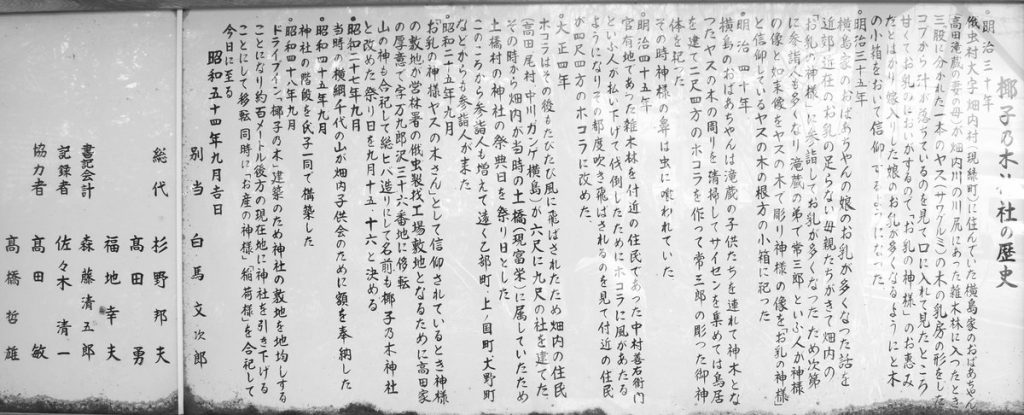 椰子の木神社の歴史
・明治三十年
俄虫村大字畑内村(現緑町)に住んでいた横島家のおばあちゃん
高田滝蔵の妻の母が畑内川の川尻にあった雑木林に入ったとき
三股に分かれた一本のヤス(サワグルミ)の木の乳房の形をした
コブから汁が落ちているのを見て口に入れて見たところ
甘くてお乳のにおいがするので、「お乳の神様」のお恵み
だとばかり嫁入りした娘のお乳が多くなるようにと木
の小箱をおいて信仰するようになった
・明治三十五年
横島家のおばあちゃんの娘のお乳が多くなった話を
近郊近在のお乳の足らない母親たちがきいて畑内の
「お乳の神様」に参詣してお乳が多くなったため次第
に参詣人も多くなり滝蔵の弟で常三郎といふ人が神様
の像と如来像をヤスの木で彫り神様の像を「お乳の神様」
と信仰しているヤスの木の根方の小箱に祀った
・明治四十年
横島のおばあちゃんは滝蔵の子供たちを連れて神木とな
ったヤスの木の周りを清掃してサイセンを集めては鳥居
を建て二尺四方のホコラを作って常三郎の彫った御神
体を祀った
その時神様の鼻は虫に喰われていた
・明治四十五年
官有地であった雑木林を付近の住民であった中村善右衛門
といふ人が払い下げて伐倒したためにホコラに風があたる
ようになりその都度吹き飛ばされるのを見て付近の住民
が四尺四方のホコラに改めた。
・大正四年
ホコラはその後もたびたび風に飛ばされたため畑内の住民
(高田尾村中川カンジ横島)が六尺に九尺の社を建てた。
その時から畑内が当時の土橋(現富栄)に属していたため
土橋村の神社の祭典の日を祭り日とした
このころから参詣人も増えて遠く乙部町上ノ国町大野町
などからも参詣人が来た
・昭和二十五年九月
「お乳の神様ヤスの木さん」として信仰されているとき神様
の敷地が営林署の俄虫製材工場敷地となるために高田家
の厚意で字万九郎沢三十六番地に移転
山の神も合祀して総ヒバ造りにして名前も椰子乃木神社
と改めた祭り日を九月十五・十六と決める
・昭和二十七年九月
当時の横綱千代の山が畑内子供会のために額を奉納した
・昭和四十五年九月
神社の階段を氏子一同で構築した
・昭和四十八年九月
ドライブイン「椰子の木」建築のため神社の敷地を地均しする
ことになり約百メートル後方の現在地に神社を引き下げる
ことにして移転同時に「お産の神様」稲荷様」を合祀して
今日に至る
昭和五十四年九月吉日
別当 白馬文次郎
総代 杉野邦夫
高田勇
福地幸夫
書記会計 森藤清五郎
記録者 佐々木清一
協力者 高田敏
高橋哲雄